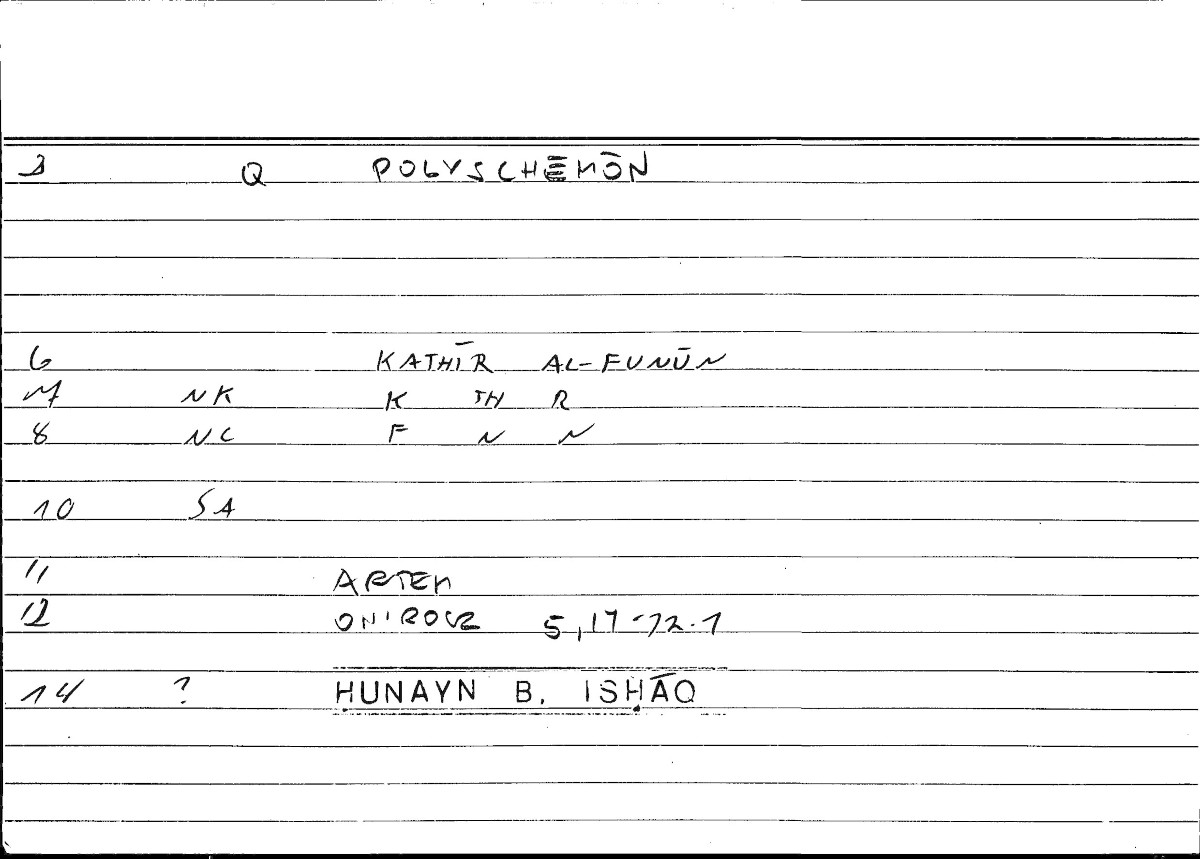 3 Q POLYSCHĒMŌN
6 KATHĪR AL-FUNŪN
7 NK K TH R
8 NC F N N
10 SA
11 ARTEM
12 ONIROCR 5,17-12.1
14 ? HUNAYN B. ISḤĀQ